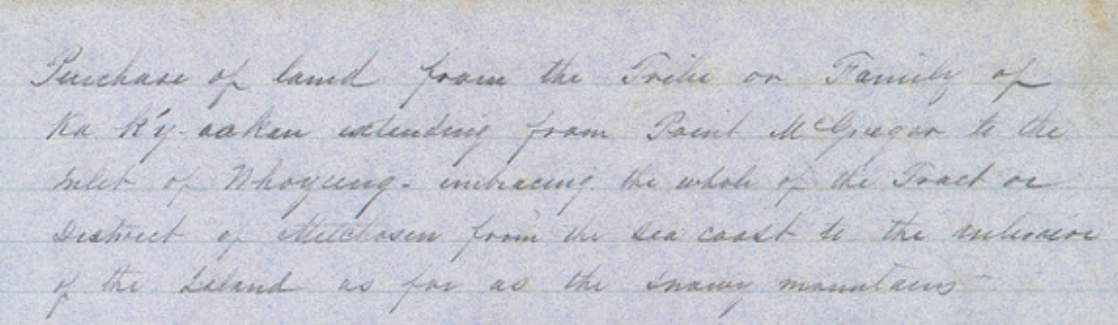 Purchase of land from the Tribe or Family of
Ka Ky-aakan extending from Point McGregor to the
Inlet of Whoyung - embracing the whole of the Tract or
District of Metchosin from the sea coast to the interior
of the Island as far as the snowy mountains